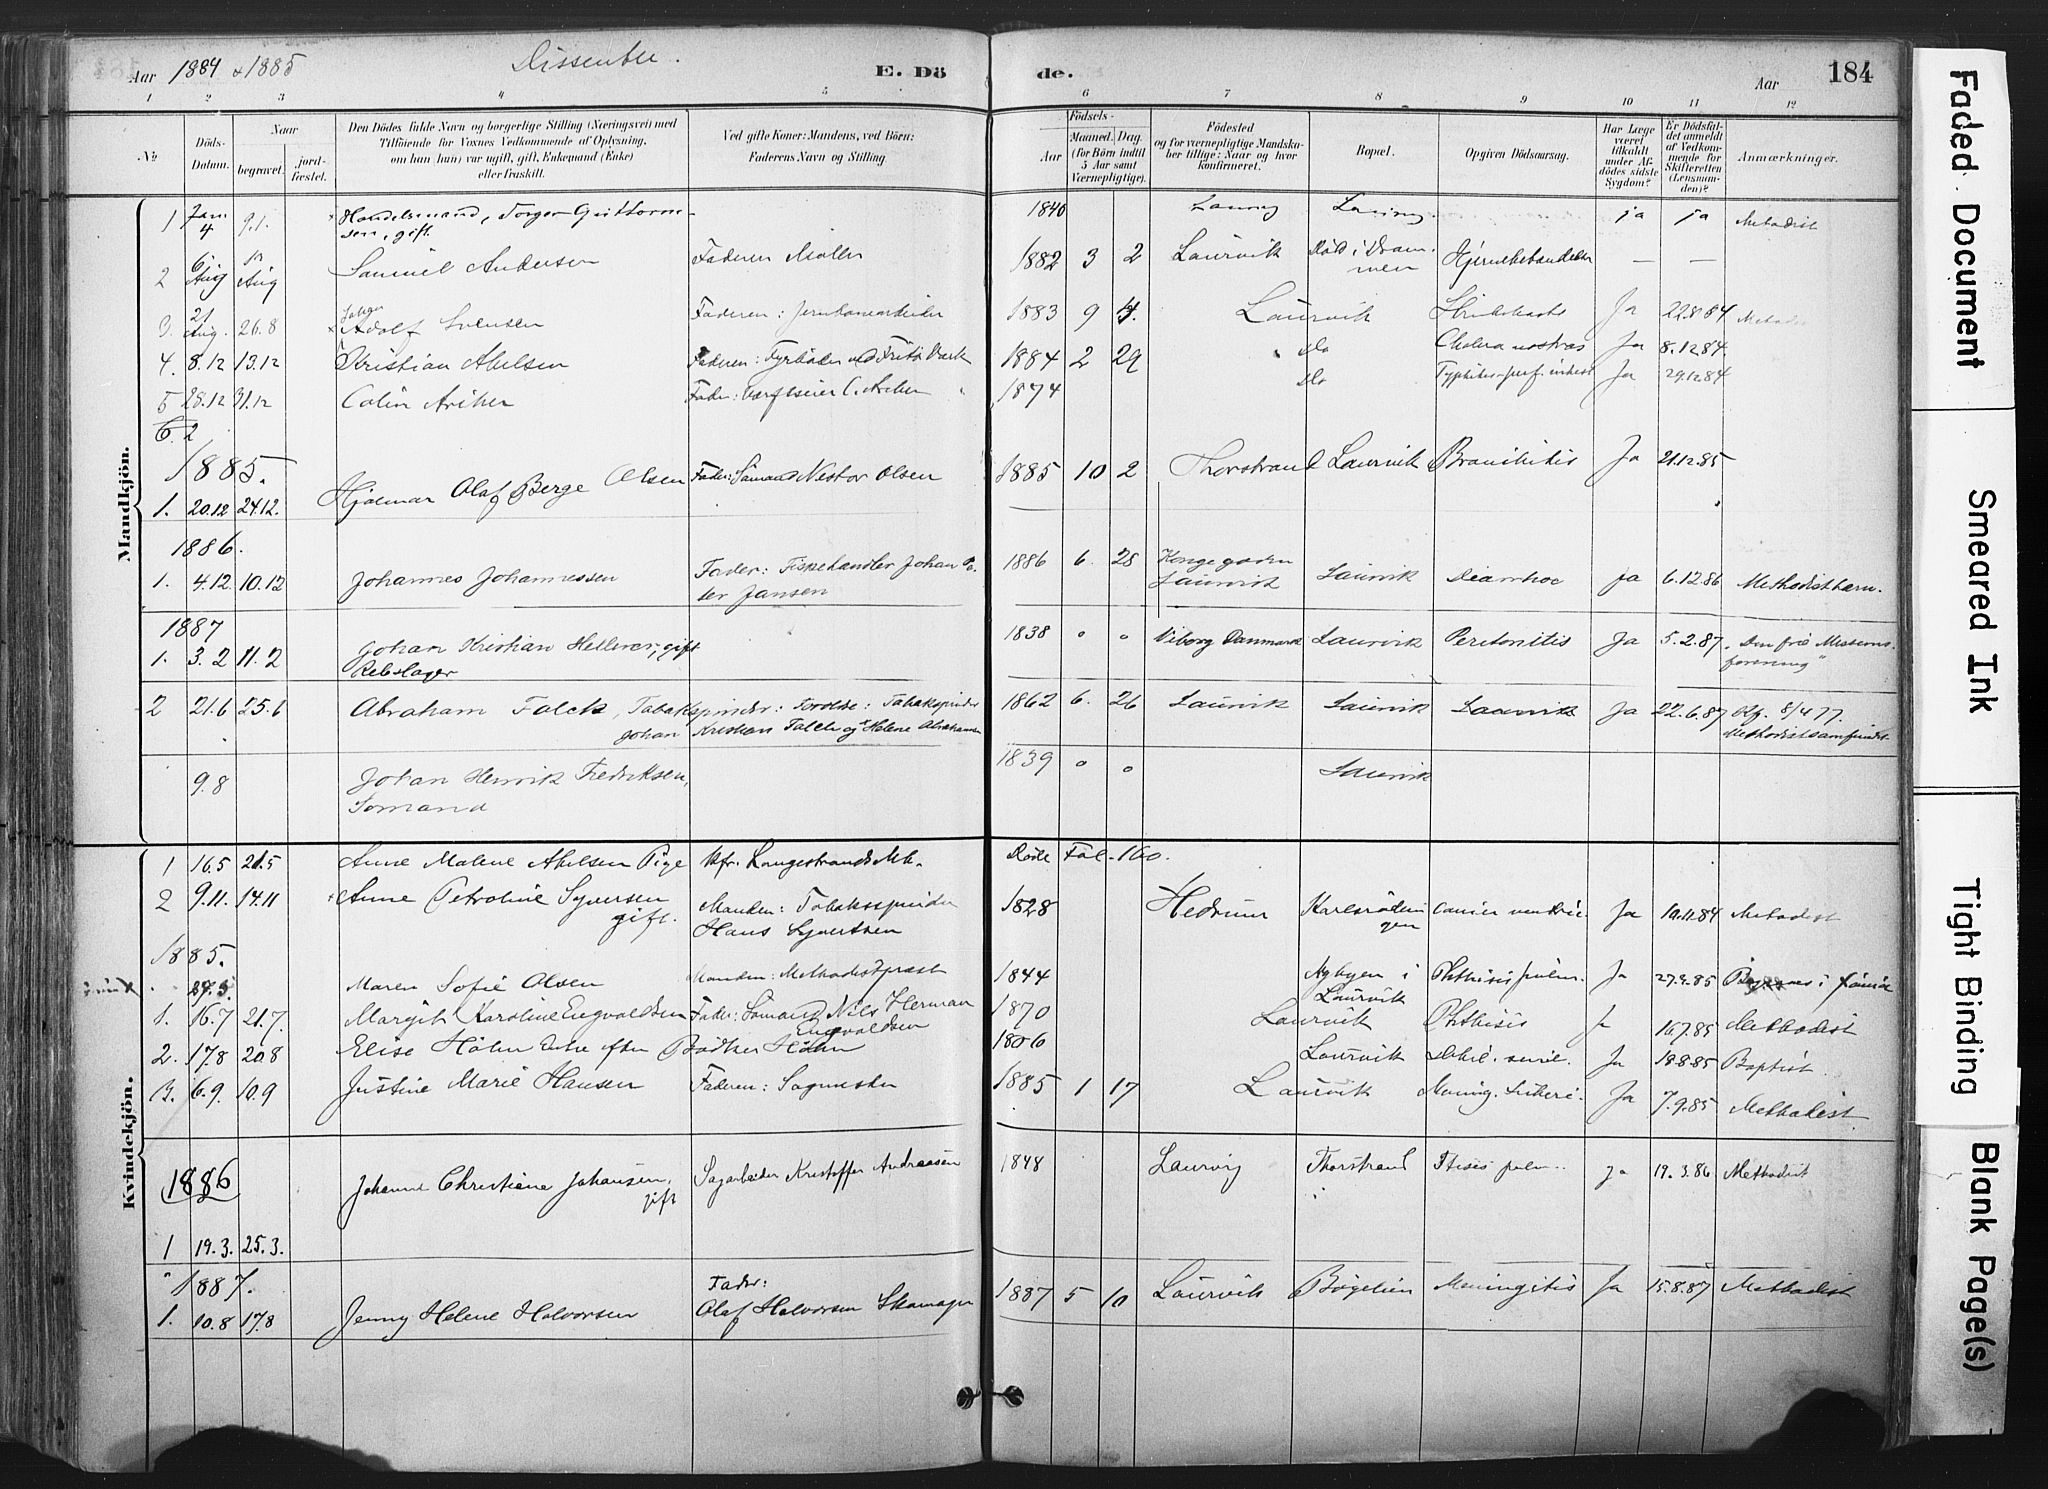 Aar 1884 & 1885 Dissenter. E. Döde. Aar 184
1 2 3 4 5 6 7 8 9 10 11 12
No
Döds-Datum.
Naar
begravet. jord-fæstet.
Den Dödes fulde Navn og borgerlige Stilling (Næringsvei) med
Tilföiende for Voxnes Vedkommende af Oplysning,
om han (hun) var ugift, gift, Enkemand (Enke)
eller fraskilt.
Ved gifte Koner: Mandens, ved Börn:
Faderens Navn og Stilling.
Födsels-
Aar Maaned. Dag.
(for Börn indtil
5 Aar samt
Værnepligtige).
Födested
og for værnepligtige Mandskaber tillige: Naar og hvor
konfirmeret.
Bopæl.
Opgiven Dödsaarsag.
Har Læge
været
tilkaldt
under Afdödes sidste
Sygdom?
Er Dödsfaldet anmeldt
af Vedkommende for
Skifteretten
(Lensmanden)?
Anmærkninger.
Mandkjön.
1 Jan 4 9.1. Handelsmand, Torger Guttormsen, gift. 1840 Laurvig Laurvig ja ja Metodist
2 Aug Aug Samuel Andersen Faderen Møller 1882 3 2 Laurvik Död i Drammen — —
3. 21 Aug. 26.8 Adolf Svensen Faderen: Jernbanearbeider 1883 9 Laurvik Ja 22.8.84
4. 8.12 13.12 Kristian Abelsen Faderen: Fyrböder ved Fritzö Værk 1884 2 29 do Cholera nostras Ja 8.12.84
5 28.12 31.12 Colin Archer Fader: Værftseier C. Archer 1874 do Ja 29.12.84
6.2
1885.
1. 20.12 24.12. Hjalmar Olaf Berge Olsen Fader: Sömand Nestor Olsen 1885 10 2 Thorstrand Laurvik Bronikitis Ja 21.12.85
1886.
1. 4.12. 10.12 Johannes Johannessen Fader: Fiskehandler Johan Peter Jansen 1886 6. 28 Kongegaden Laurvik Laurvik Diarrhoe ja 6.12.86 Methodistbarn.
1887
1. 3.2 11.2 Johan Kristian Hellner, gift Rebslager 1838 " " Viborg Danmark Laurvik Peritonitis Ja 5.2.87 "Den frie Missionsforening"
2 21.6 25.6 Abraham Falck, Tabakspinder: Forældre: Tabakspinder
Johan Kristian Falck og Helene Abrahamsen 1862 6. 26 Laurvik Laurvik Laurvik Ja 22.6.87 Kf. 8/4 77. Methodistsamfundet
9.8 Johan Henrik Fredriksen, Sömand 1839 " " Laurvik
Kvindekjön.
1 16.5 21.5 Anne Malene Abelsen Pige Kfr. Langestrands Mb. Döde Fol. 160.
2 9.11. 14.11 Anne Petroline Syversen gift. Manden: Tobaksspinder Hans Syvertsen 1828 Hedrum Ja 10.11.84 Metodist
1885.
27.3. Maren Sofie Olsen Manden: Methodistpræst 1844 Nybyen i Laurvik Phthisis pulm. Ja 27.4.85
1. 16.7 21.7. Margit Karoline Engvoldsen Fader: Sömand Nils Herman Engvoldsen 1870 Laurvik Phthisis Ja 16.7.85 Methodist
2. 17.8 20.8 Elise Holm Enke efter Bödker Holm 1806 Laurvik Debil. senil. Ja 18.8.85 Baptist.
3. 6.9. 10.9 Justine Marie Hansen Faderen: Sagmester 1885 1 17 Laurvik Mening. tuberc. Ja 7.9.85 Methodist
1886
1 19.3. 25.3. Johanne Christiane Johansen, gift Sagarbeider Kristoffer Andreasen 1848 Laurvig Thorstrand Ftisis pulm. ja 19.3.86 Methodist
1887.
1. 10.8 17.8 Jenny Helene Halvorsen Fader: Olaf Halvorsen Skomager 1887 5 10 Laurvik Bögelien Meningitis Ja 15.8.87 Methodist
Faded Document
Smeared Ink
Tight Binding
Blank Page(s)